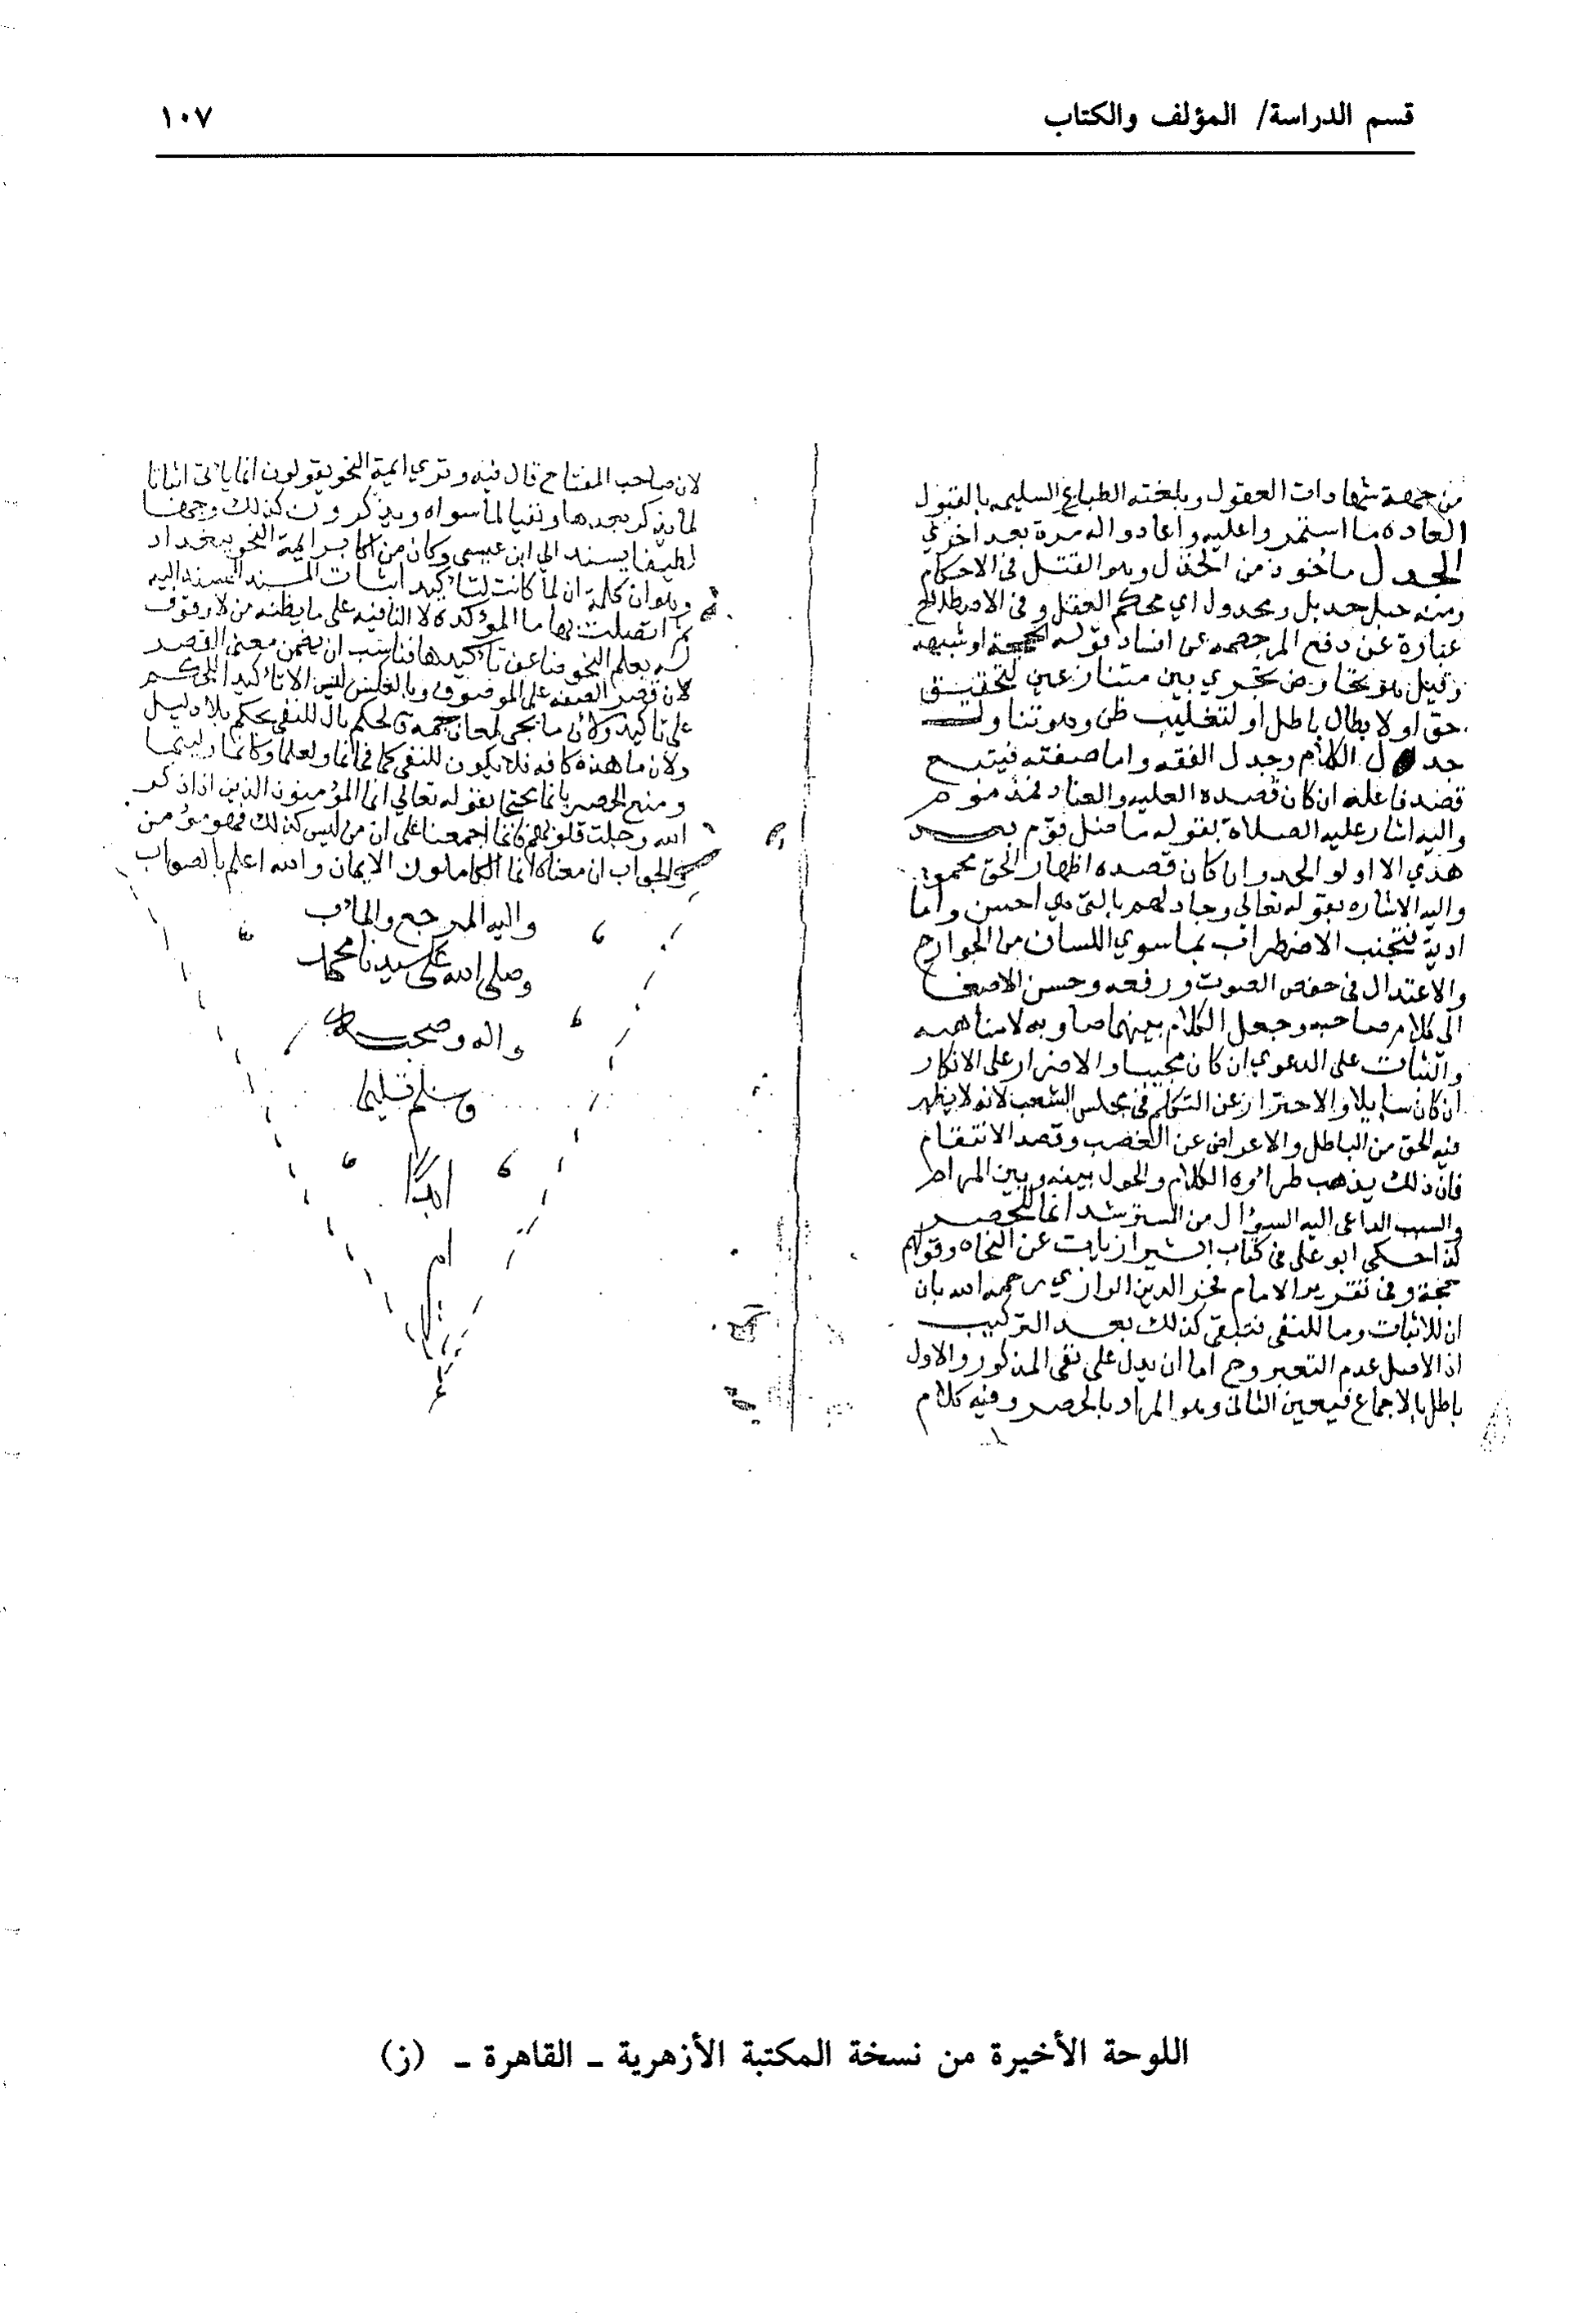 قسم الدراسة/ المؤلف والكتاب
١٠٧
من جهة شهادات العقول وبلغته الطباع السليمه بالقبول
العاده ما استمروا عليه واعادوا له مرة بعد اخري
الجدل ماخوذ من الجدل وهو الفتل في الاحكام
ومنه حبل جديل ومجدول اي محكم الفتل وفي الاصطلاح
عبارة عن دفع المر خصمه عن افساد قوله بحجة او شبهه
وقيل هو تخاوض يجري بين متنازعين لتحقيق
حق او لابطال باطل او لتغليب ظن وهو تناول
جدل الكلام وجدل الفقه واما صفته فيتبع
قصد فاعله ان كان قصده الغلبه والعناد فمذموم
واليه اشار عليه الصلاة بقوله ما ضل قوم بعد
هدي الا اولو الجدل وان كان قصده اظهار الحق محمود
واليه الاشاره بقوله تعالي وجادلهم بالتي هي احسن واما
ادبه فتجنب الاضطراب بما سوي اللسان من الجوارح
والاعتدال في خفض الصوت ورفعه وحسن الاصغا
الى كلام صاحبه وجعل الكلام بينهما مناوبه لا مناهبه
والثبات على الدعوي ان كان مجيبا والاصرار على الانكار
ان كان سايلا والاحتراز عن التكلم في مجلس الشغب لانه لا يظهر
فيه الحق من الباطل والاعراض عن الغضب وقصد الانتقام
فان ذلك يذهب طراوة الكلام والحول بينه وبين المرام
والسبب الداعى اليه السؤال من المسترشد انما للحصر
كذا حكى ابو على في كتاب الشيرازيات عن النحاه وقولهم
حجة وفى تقرير الامام فخر الدين الرازي رحمه الله بان
ان للاثبات وما للنفى فتبقى كذلك بعد التركيب
اذ الاصل عدم التغير وح اما ان يدل على نفى المذكور والاول
باطل بالاجماع فيتعين الثانى وهو المراد بالحصر وفيه كلام
لان صاحب المفتاح قال فيه وتري ايمة النحو يقولون انما ياتي اثباتا
لما يذكر بعدها ونفيا لما سواه ويذكرون كذلك وجها
لطيفا يسند الي ابن عيسى وكان من اكابر ايمة النحو ببغداد
وهو ان كلمة ان لما كانت لتاكيد اثبات المسند للمسند اليه
ثم اتصلت بها ما المؤكده لا النافيه على ما يظنه من لا وقوف
له بعلم النحو فناسب ان يضمن معنى القصر
لان قصر الصفه على الموصوف وبالعكس ليس الا تاكيد للحكم
على تاكيد ولان ما يجى لمعان جمة فالحكم بان للنفى يحكم بلا دليل
ولان ما هذه كافه فلا يكون للنفى كما في انما ولعلما وكانما وليتما
ومنع الحصر بانما يحتج بقوله تعالي انما المؤمنون الذين اذا ذكر
الله وجلت قلوبهم فانما اجمعنا على ان من ليس كذلك فهو مؤمن
والجواب ان معناه انما الكاملون الايمان والله اعلم بالصواب
واليه المرجع والمآب
وصلى الله على سيدنا محمد
واله وصحبه
وسلم تسليما
ابدا
ام
اللوحة الأخيرة من نسخة المكتبة الأزهرية ـ القاهرة ـ (ز)